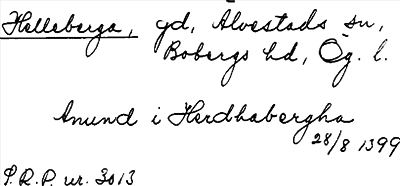 Helleberga, gd, Alvestads sn,
Bobergs hd, Ög. l.
Anund i Herdhabergha
28/8 1399
S.R.P. nr. 3013